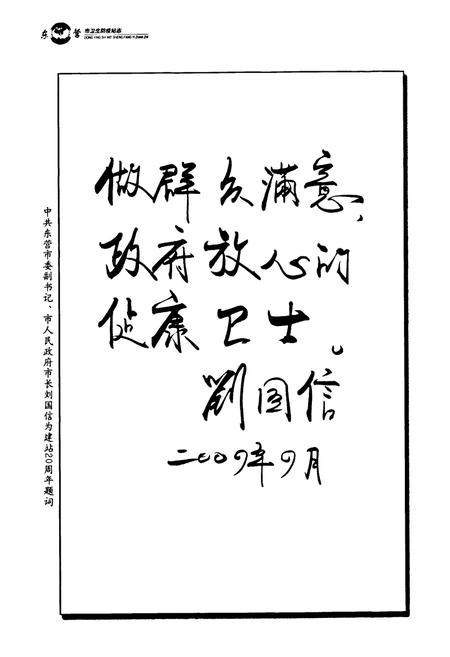 东营
市卫生防疫站志
DONG YING SHI WEI SHENG FANG YI ZHAN ZHI
做群众满意、
政府放心的
健康卫士。
劉国信
二00九年9月
中共东营市委副书记、市人民政府市长刘国信为建站20周年题词